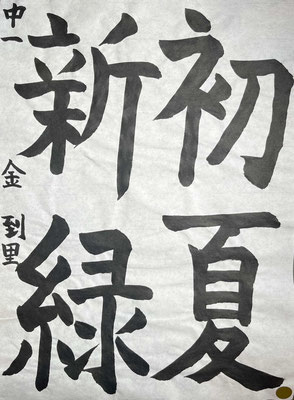 初夏
新緑
中一 金到里